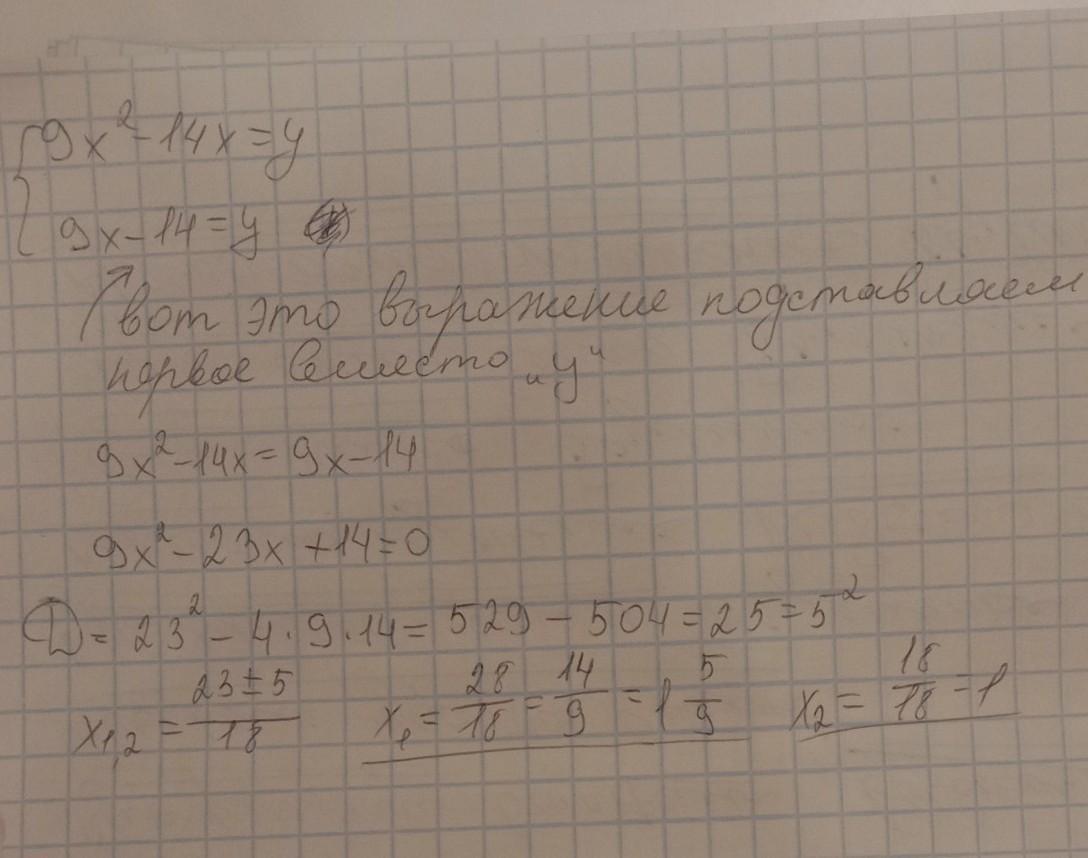 9x² - 14x = y
9x - 14 = y
вот это выражение подставляем
первое вместо „y“
9x² - 14x = 9x - 14
9x² - 23x + 14 = 0
D = 23² - 4 · 9 · 14 = 529 - 504 = 25 = 5²
x₁,₂ = (23 ± 5)/18 x₁ = 28/18 = 14/9 = 1 5/9 x₂ = 18/18 = 1